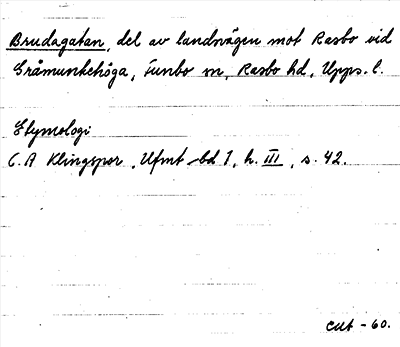 Brudagatan, del av landsvägen mot Rasbo vid
Gråmunkehöga, Funbo sn, Rasbo hd, Upps. l.
Etymologi
C. A Klingspor, Ufmt bd 1, h. III, s. 42.
CUA - 60.